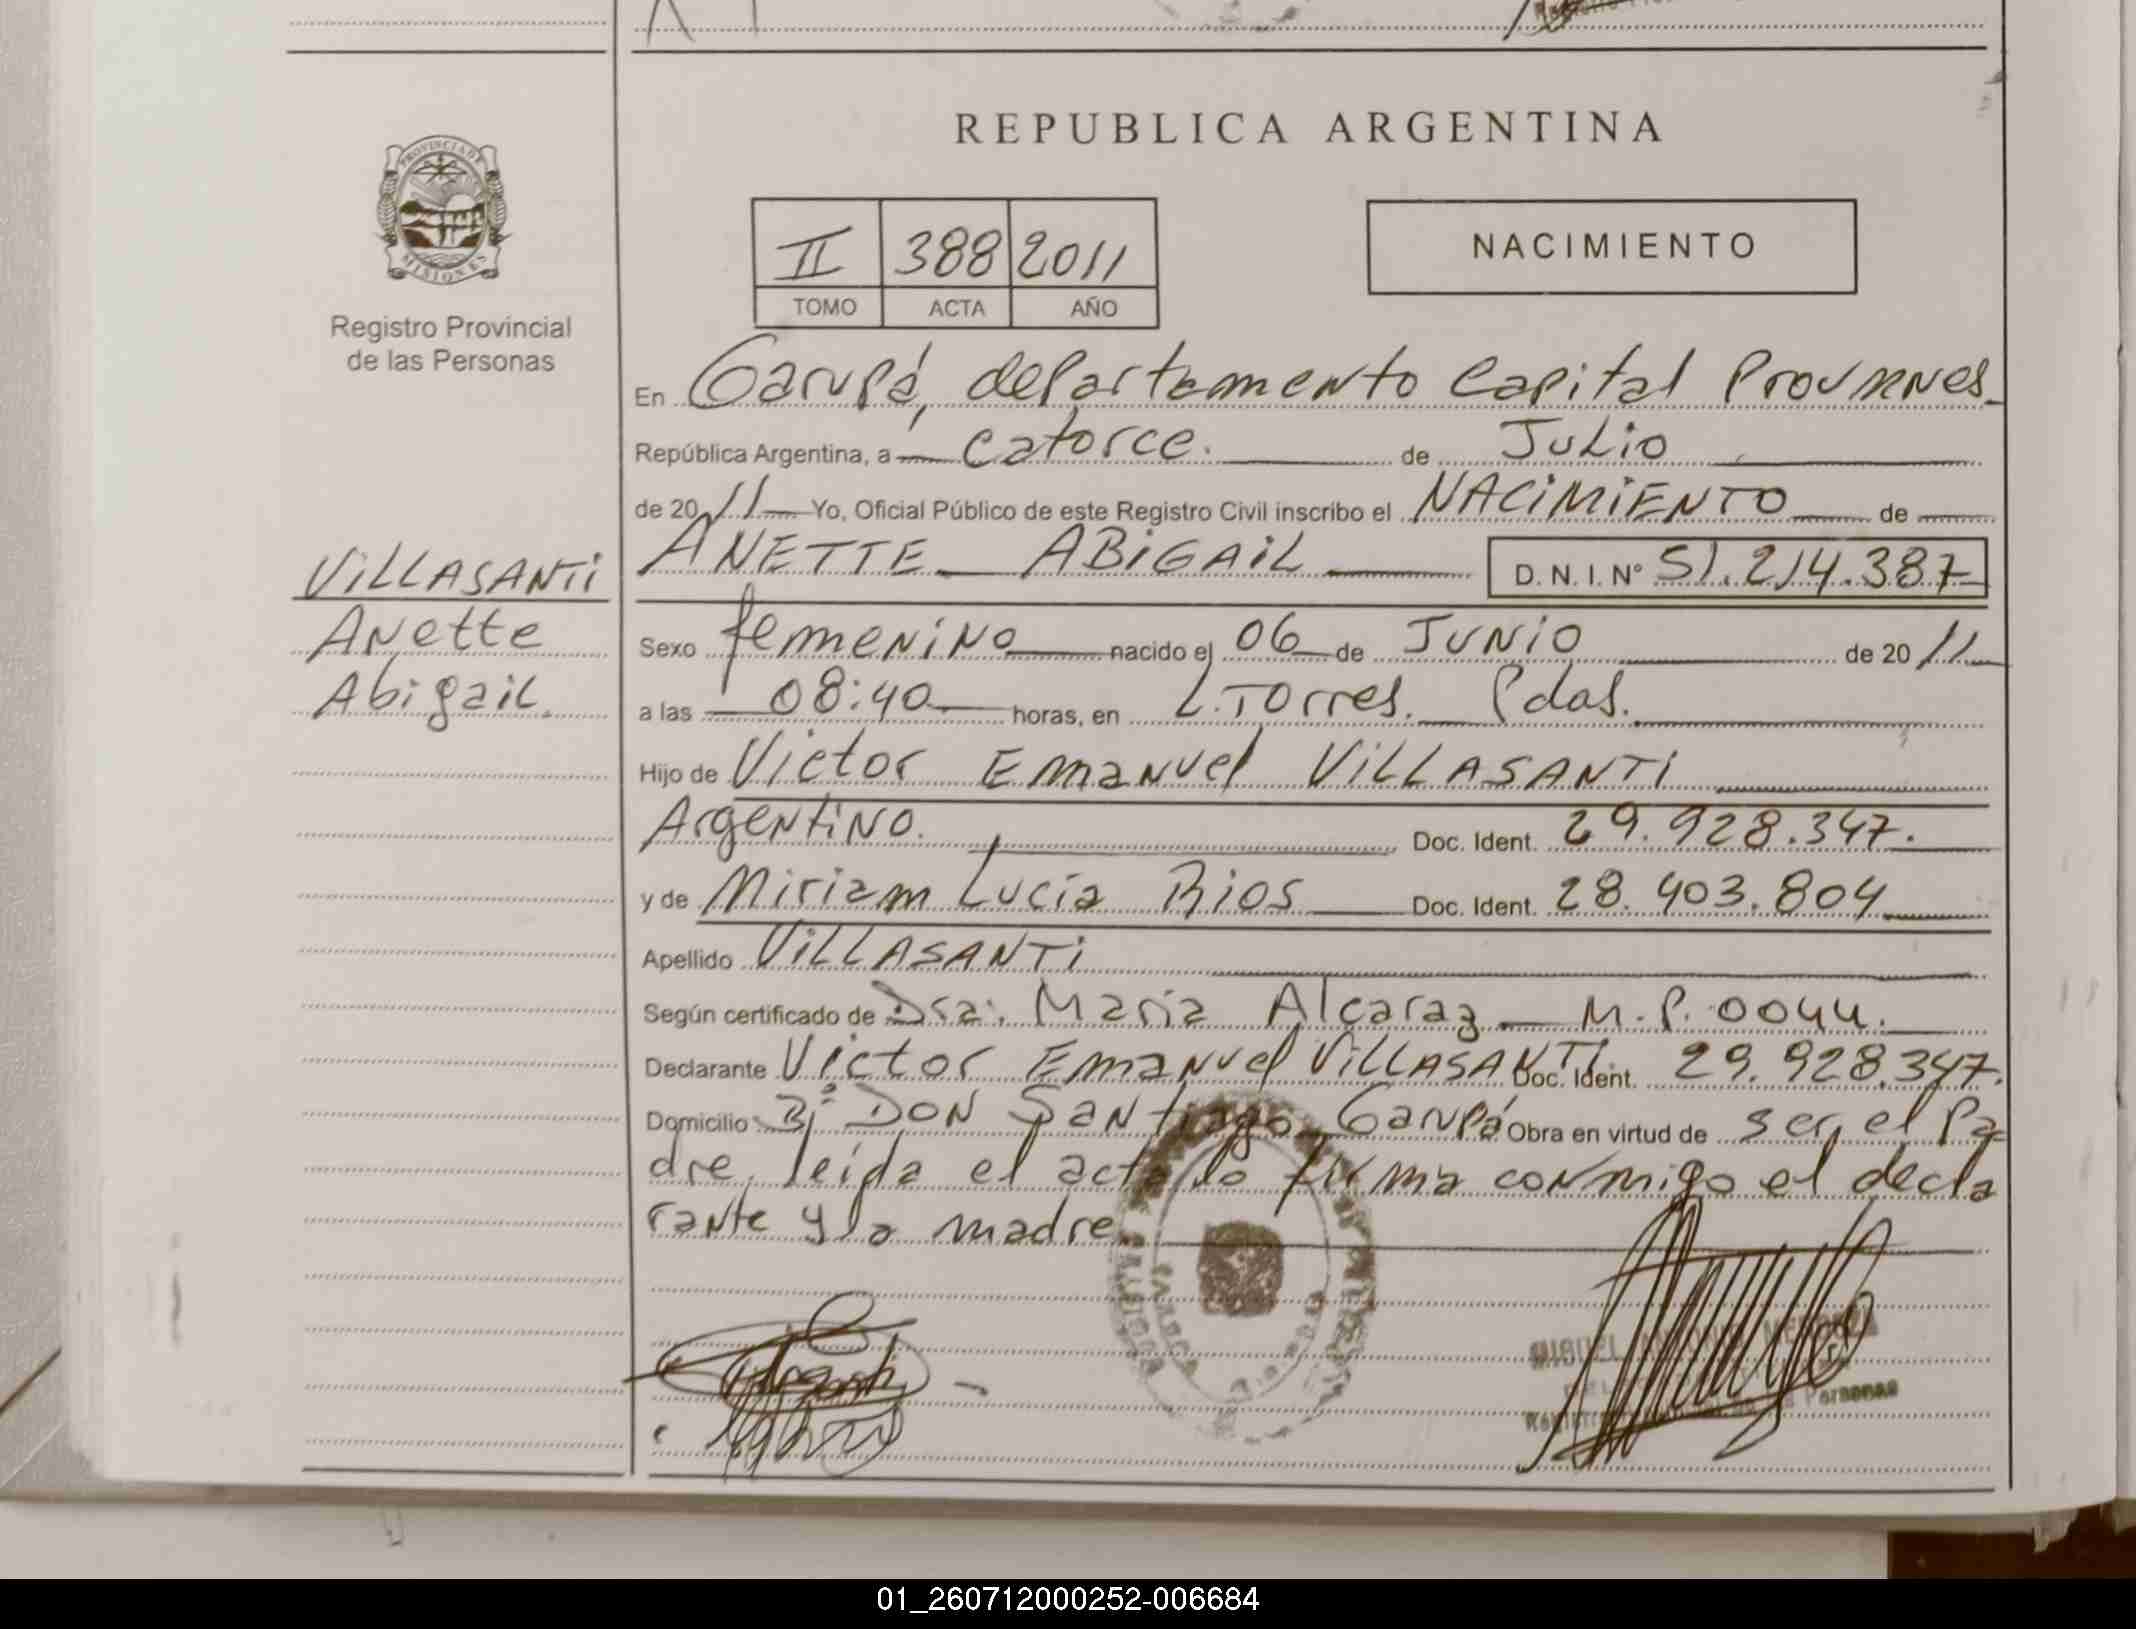 REPUBLICA ARGENTINA
PROVINCIA DE
MISIONES
Registro Provincial
de las Personas
II 388 2011
TOMO ACTA AÑO
NACIMIENTO
En Garupá, departamento Capital
República Argentina, a catorce. de Julio
de 2011 Yo, Oficial Público de este Registro Civil inscribo el NACIMIENTO de
VILLASANTI
Anette
Abigail.
ANETTE ABIGAIL D. N. I. N° 51.214.387
Sexo femenino nacido el 06 de JUNIO de 2011
a las 08:40 horas, en L. Torres. Pdas.
Hijo de Victor Emanuel VILLASANTI
Argentino. Doc. Ident. 29.928.347.
y de Miriam Lucía Rios Doc. Ident. 28.403.804
Apellido VILLASANTI
Según certificado de Dra. Maria Alcaraz M.P. 0044.
Declarante Victor Emanuel VILLASANTI Doc. Ident. 29.928.347.
Domicilio B° DON Santiago, Garupá Obra en virtud de ser el Pa
dre, leída el acta lo firma conmigo el decla
rante y la madre.
MIGUEL
Personas
01_260712000252-006684